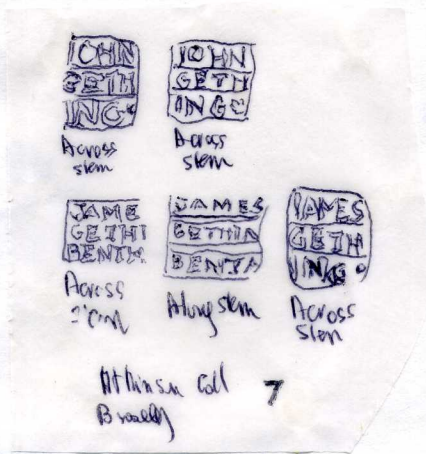 JOHN
GETH
ING
Across
stem
JOHN
GETH
ING
Across
stem
JAME
GETHI
BENTH
Across
JAMES
GETHIN
BENTA
Along stem
JAMES
GETH
ING
Across
stem
Atkinson Coll 7
Broseley